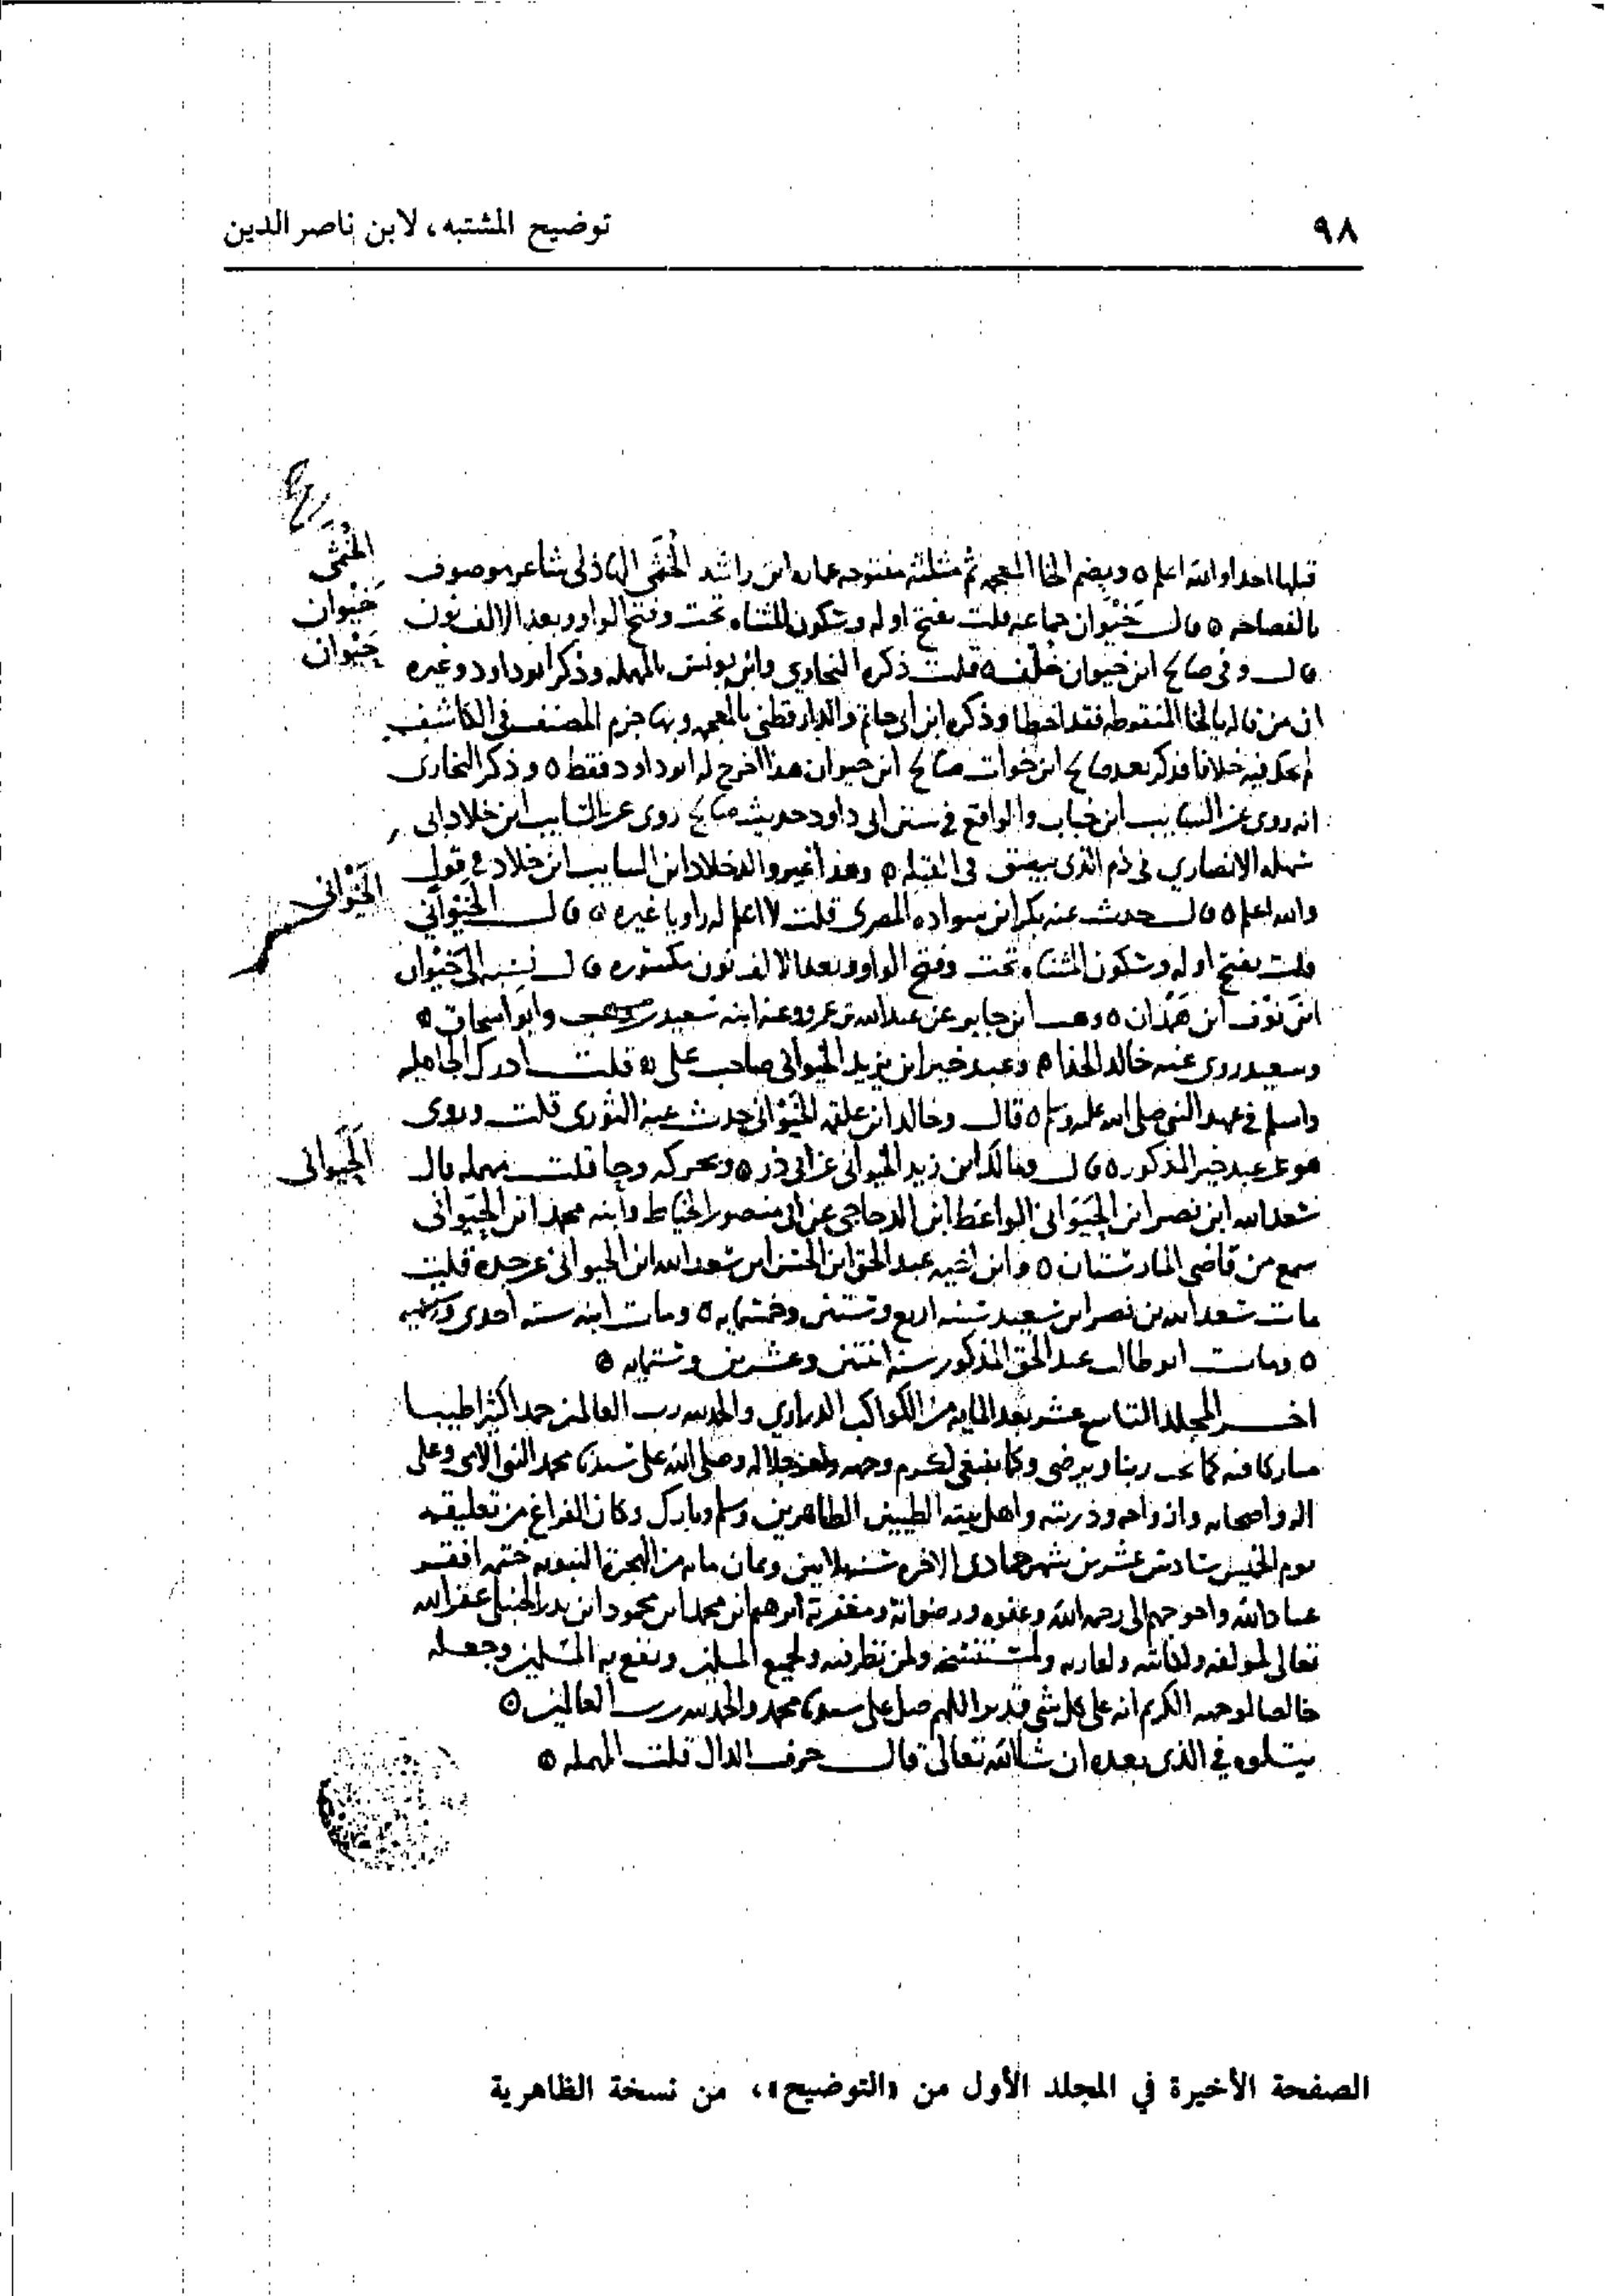 ٩٨
توضيح المشتبه، لابن ناصر الدين
قبلها احد او الله اعلم ٥ وبضم الخا المعجمه ثم مثلثة مفتوحه ابن راشد الخُثَمي الهاذلى شاعر موصوف
بالفصاحه ٥ قال خَيْوان جماعه قلت بفتح اوله وسكون المثناه تحت وفتح الواو وبعد الالف نون
قال وفى صالح ابن خيوان خُلف ٥ قلت ذكره البخاري وابن يونس بالمهمله وذكر ابو داود وغيره
ان من قاله بالخا المنقوطه فقد اخطا وذكره ابن ابى حاتم والدارقطنى بالمعجمه وبها جزم المصنف فى الكاشف
لم يحك فيه خلافا فذكر بعد صالح ابن خوات صالح ابن خيوان هذا اخرج له ابو داود فقط ٥ وذكر البخارى
انه روى عن السايب ابن خباب والواقع فى سنن ابى داود حديث صالح روى عن السايب ابن خلاد ابى
سهله الانصاري فى ذم الذى يبصق فى القبله ٥ وهذا غير والد خلاد ابن السايب ابن خلاد فى قول
والله اعلم ٥ قال حدث عنه بكر ابن سواده المصرى قلت لا اعلم له راويا غيره ٥ قال الخَيْواني
قلت بفتح اوله وسكون المثناه تحت وفتح الواو وبعد الالف نون مكسوره قال نسبه الى خَيْوان
ابن نَوْف ابن هَمْدان ٥ وهب ابن جابر عن عبد الله بن عمرو وعنه ابنه سعيد بن وهب وابو اسحاق ٥
وسعيد روى عنه خالد الحذا ٥ وعبد خير ابن يزيد الخيوانى صاحب على ٥ قلت ادرك الجاهليه
واسلم فى عهد النبى صلى الله عليه وسلم ٥ قال وخالد ابن علقمه الخَيْوانى حدث عنه الثورى قلت وروى
هو عن عبد خير المذكور ٥ قال ومالك ابن زيد الخيوانى عن ابى ذر ٥ وبحركه وحا قلت مهمله قال
سعد الله ابن نصر ابن الحَيَوانى الواعظ ابن الدجاجى عن ابى منصور الخياط وابنه محمد ابن الحَيَوانى
سمع من قاضى المارستان ٥ وابن اخيه عبد الحق ابن الحسن ابن سعد الله ابن الحيوانى عن جده قلت
مات سعد الله بن نصر ابن سعيد سنه اربع وستين وخمسمايه ٥ ومات ابنه سنه احدى وستمايه
٥ ومات ابو طالب عبد الحق المذكور سنة اثنتين وعشرين وستمايه ٥
اخر المجلد التاسع عشر بعد المايه من الكواكب الدراري والحمد لله رب العالمين حمدا كثيرا طيبا
مباركا فيه كما يحب ربنا ويرضى وكما ينبغى لكرم وجهه وعز جلاله وصلى الله على سيدنا محمد النبى الامى وعلى
اله واصحابه وازواجه وذريته واهل بيته الطيبين الطاهرين وسلم وبارك وكان الفراغ من تعليقه
يوم الخميس سادس عشرين شهر جمادى الاخره سنه ثلاثين وثمان مايه من الهجرة النبويه ختمه افقر
عباد الله واحوجهم الى رحمة الله وعفوه ورضوانه ومغفرته ابرهيم ابن محمد ابن محمود ابن بدر الحنبلى غفر الله
تعالى لمولفه ولكاتبه ولقاريه ولمستنسخه ولمن نظر فيه ولجميع المسلمين ونفع به المسلمين وجعله
خالصا لوجهه الكريم انه على كل شى قدير اللهم صل على سيدنا محمد والحمد لله رب العالمين ٥
يتلوه فى الذى بعده ان شا الله تعالى قال حرف الدال قلت المهمله ٥
الخُثَمى
خَيْوان
خَيْوان
الخَيْوانى
الحَيَوانى
الصفحة الأخيرة في المجلد الأول من «التوضيح»، من نسخة الظاهرية